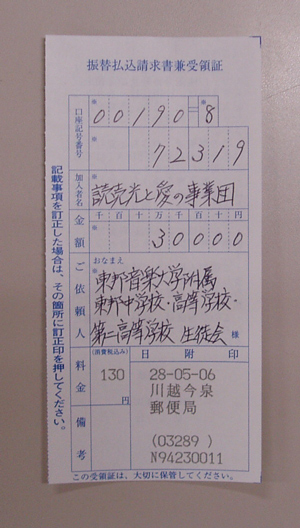 振替払込請求書兼受領証
口座記号番号
00190=8
72319
加入者名
読売光と愛の事業団
金額
千百十万千百十円
30000
ご依頼人
おなまえ
東邦音楽大学附属
東邦中学校・高等学校・
第二高等学校 生徒会 様
料金
(消費税込み)
130
円
日附印
28-05-06
川越今泉
郵便局
(03289)
N94230011
備考
この受領証は、大切に保管してください。
記載事項を訂正した場合は、その箇所に訂正印を押してください。